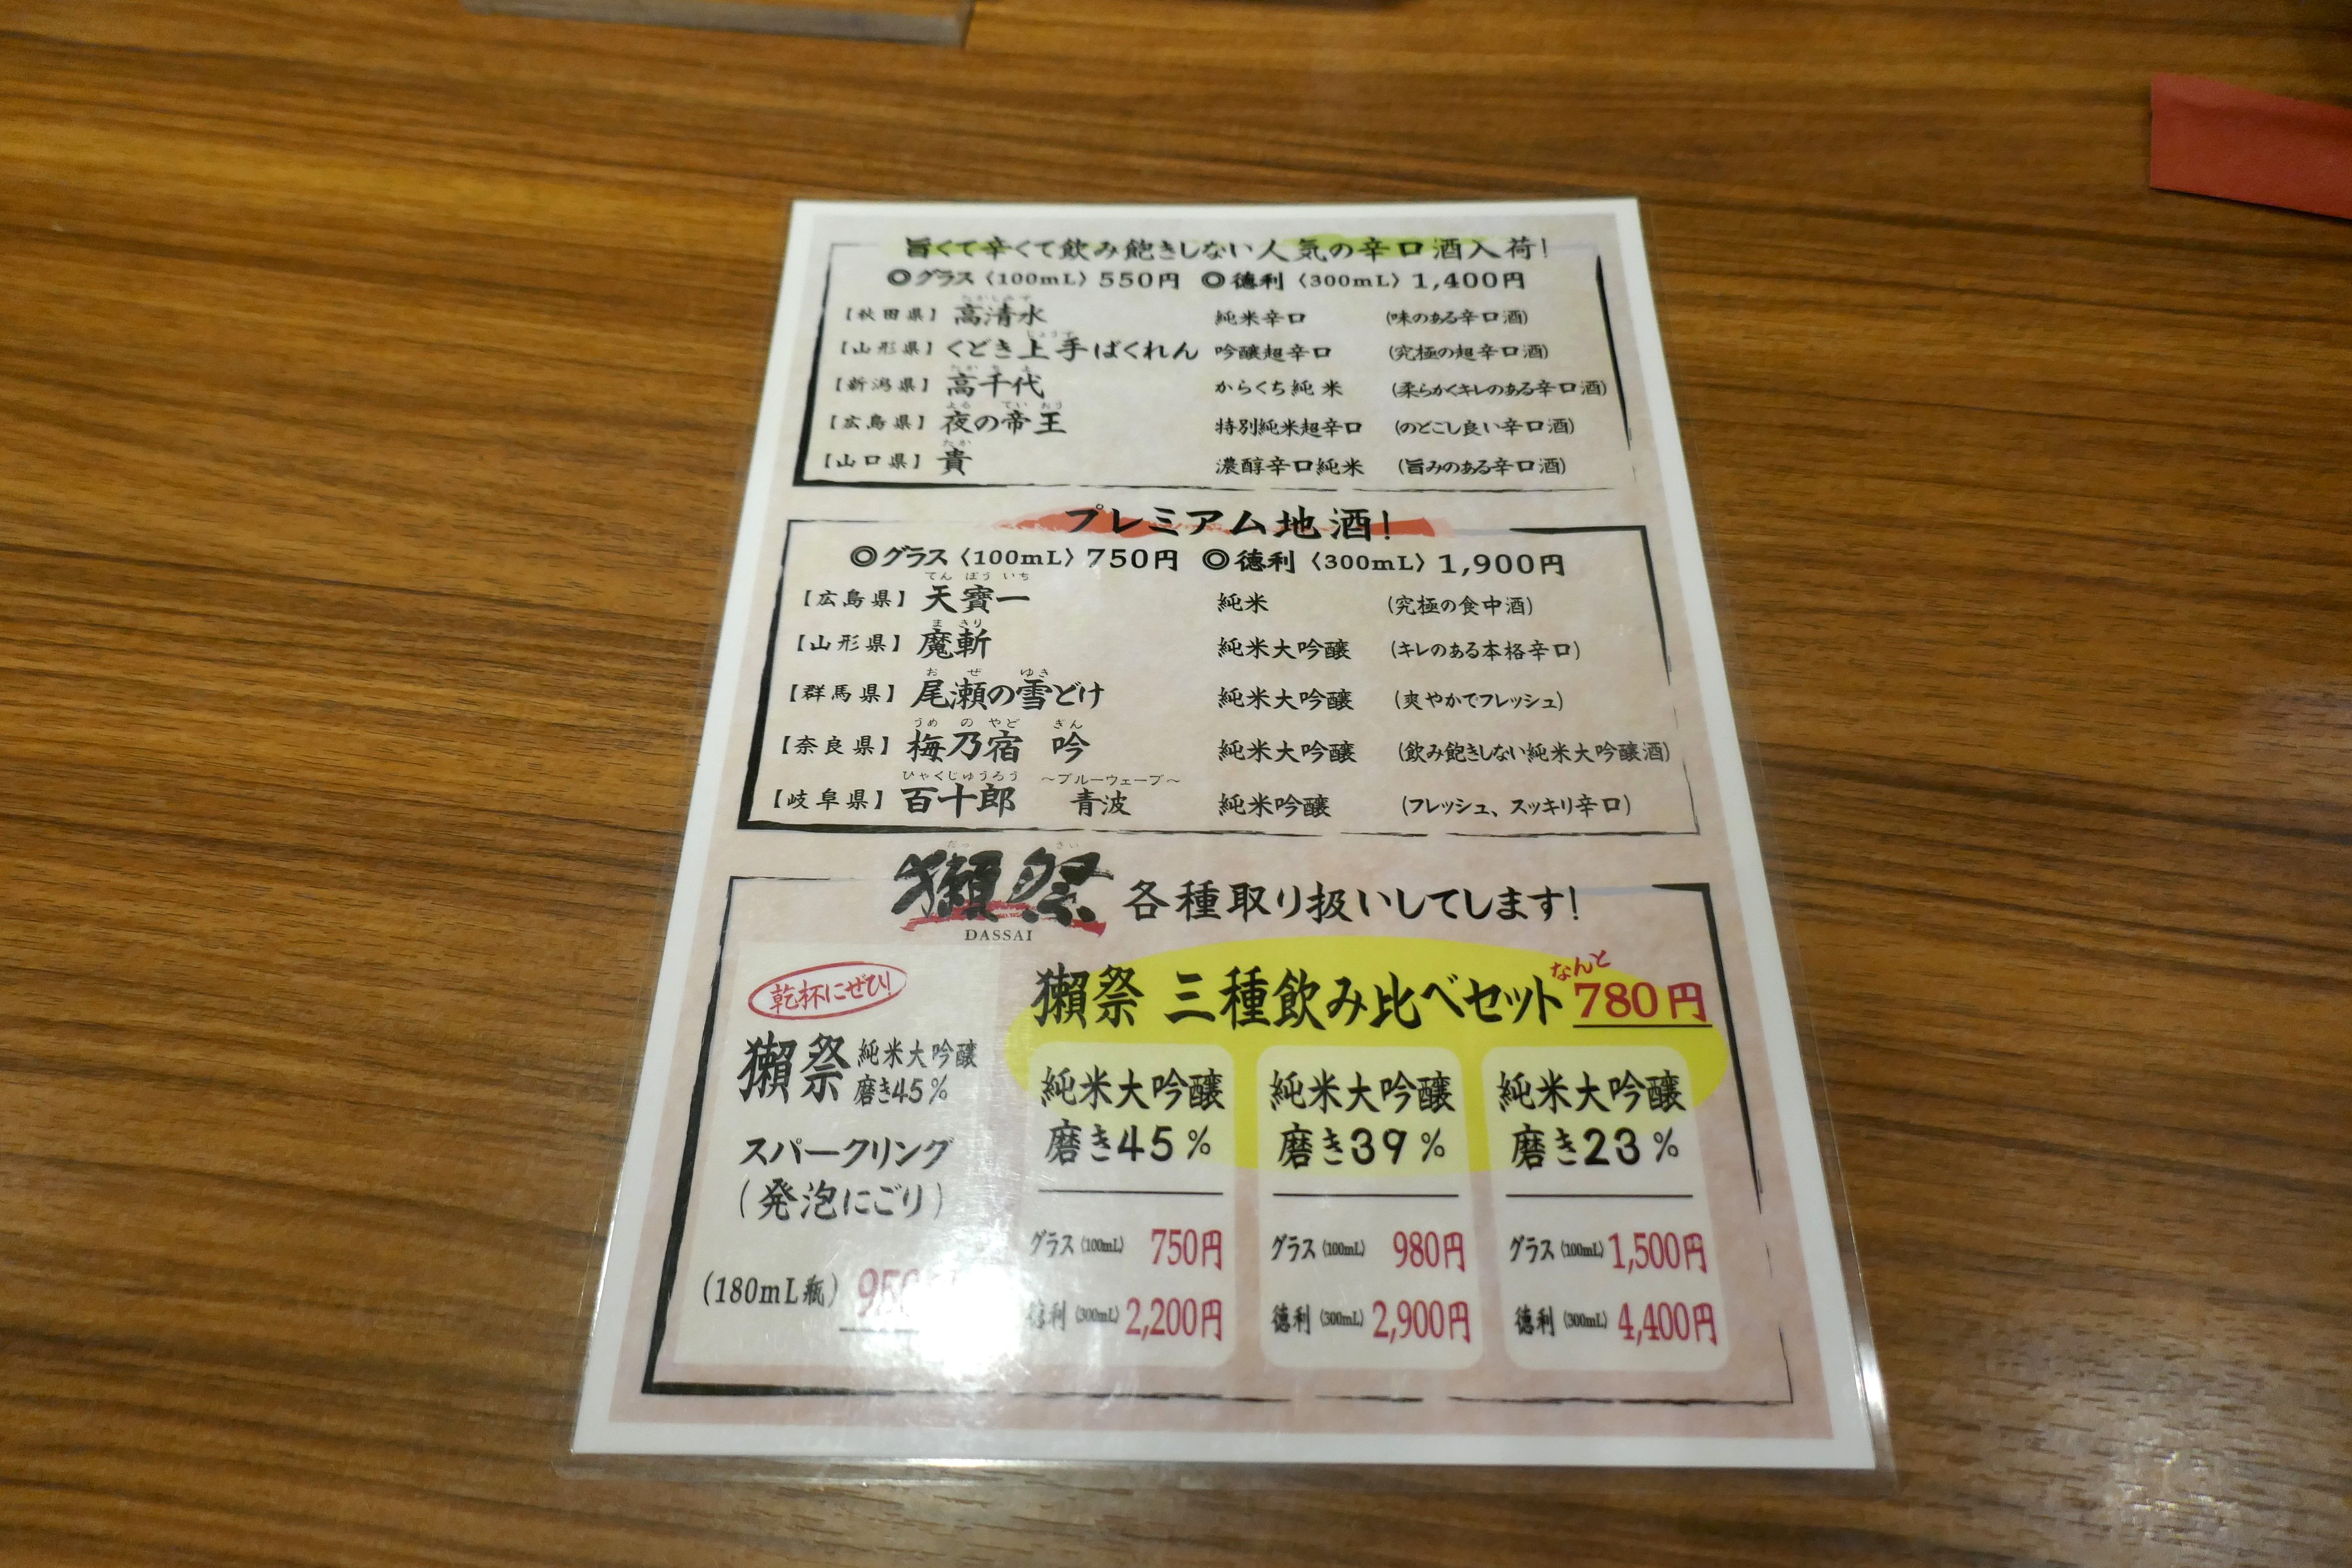 旨くて辛くて飲み飽きしない人気の辛口酒入荷!
◎グラス〈100mL〉550円 ◎徳利〈300mL〉1,400円
【秋田県】高清水 純米辛口 (味のある辛口酒)
【山形県】くどき上手ばくれん 吟醸超辛口 (究極の超辛口酒)
【新潟県】高千代 からくち純米 (柔らかくキレのある辛口酒)
よる てい おう
【広島県】夜の帝王 特別純米超辛口 (のどごし良い辛口酒)
たか
【山口県】貴 濃醇辛口純米 (旨みのある辛口酒)
プレミアム地酒!
◎グラス〈100mL〉750円 ◎徳利〈300mL〉1,900円
てん ほう いち
【広島県】天寶一 純米 (究極の食中酒)
ま きり
【山形県】魔斬 純米大吟醸 (キレのある本格辛口)
お ぜ ゆき
【群馬県】尾瀬の雪どけ 純米大吟醸 (爽やかでフレッシュ)
うめ の やど ぎん
【奈良県】梅乃宿 吟 純米大吟醸 (飲み飽きしない純米大吟醸酒)
ひゃくじゅうろう ～ブルーウェーブ～
【岐阜県】百十郎 青波 純米吟醸 (フレッシュ、スッキリ辛口)
だっ さい
獺祭 各種取り扱いしてします!
DASSAI
乾杯にぜひ!
獺祭 純米大吟醸
磨き45%
スパークリング
(発泡にごり)
(180mL瓶)
獺祭 三種飲み比べセット なんと 780円
純米大吟醸
磨き45%
グラス(100mL) 750円
徳利(300mL) 2,200円
純米大吟醸
磨き39%
グラス(100mL) 980円
徳利(300mL) 2,900円
純米大吟醸
磨き23%
グラス(100mL) 1,500円
徳利(300mL) 4,400円